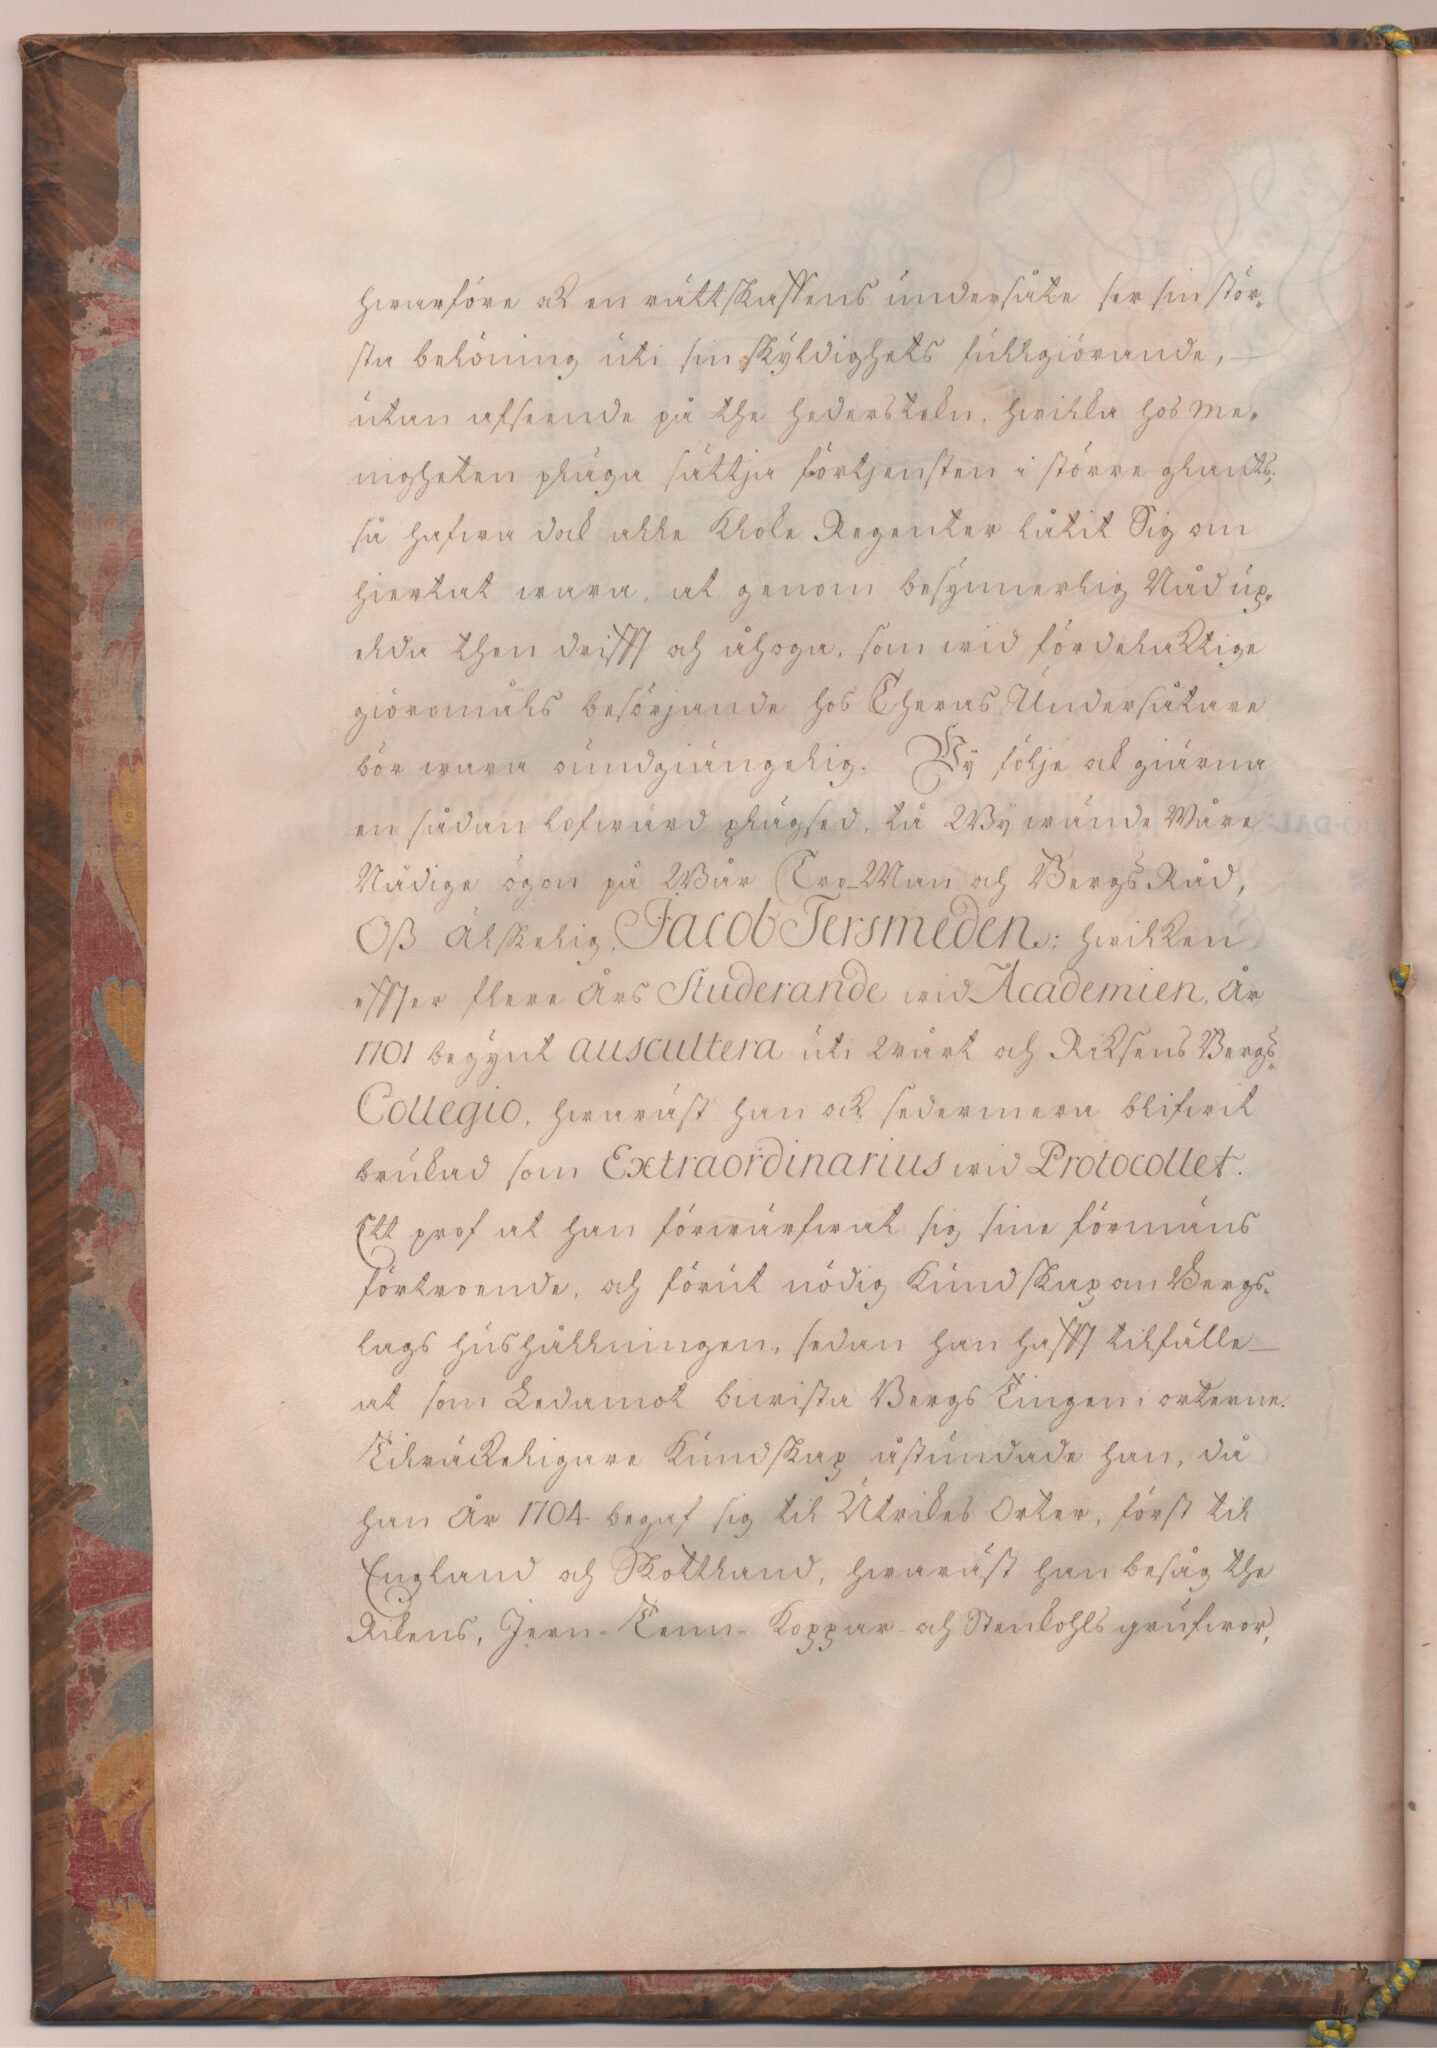 hwarföre ock en rättskaffens undersåte ser sin stör-
sta belöning uti sin skyldighets fullgiörande,
utan afseende på the hederstekn, hwilka hos me-
nigheten pläga sättja förtjensten i större glants;
så hafwa dock alle kloke Regenter låtit Sig om
hiertat wara, at genom besynnerlig Nåd up-
elda then drifft och åhoga, som wid fördelacktige
giöromåls besörjande hos Theras Undersåtare
bör wara oundgiängelig. Wy följe ock giärna
en sådan lofwärd plägsed, tå Wy wände Wåre
Nådige ögon på Wår Tro-Man och Bergs Råd,
Oß Älskelig, Jacob Tersmeden; hwilken
effter flere Års Studerande wid Academien, År
1701 begynt auscultera uti Wårt och Riksens Bergs-
Collegio, hwaräst han ock sedermera blifwit
brukad som Extraordinarius wid Protocollet.
Ett prof at han förwärfwat sig sine förmäns
förtroende, och förut nödig kundskap om Bergs-
lags hushållningen, sedan han hafft tilfälle
at som Ledamot biwista Bergs Tingen i orterne.
Tilräckeligare kundskap åstundade han, då
han År 1704 begaf sig til Utrikes Orter, först til
England och Skottland, hwaräst han besåg the
Rikens, Jern- Tenn- Koppar- och Stenkohls grufwor,